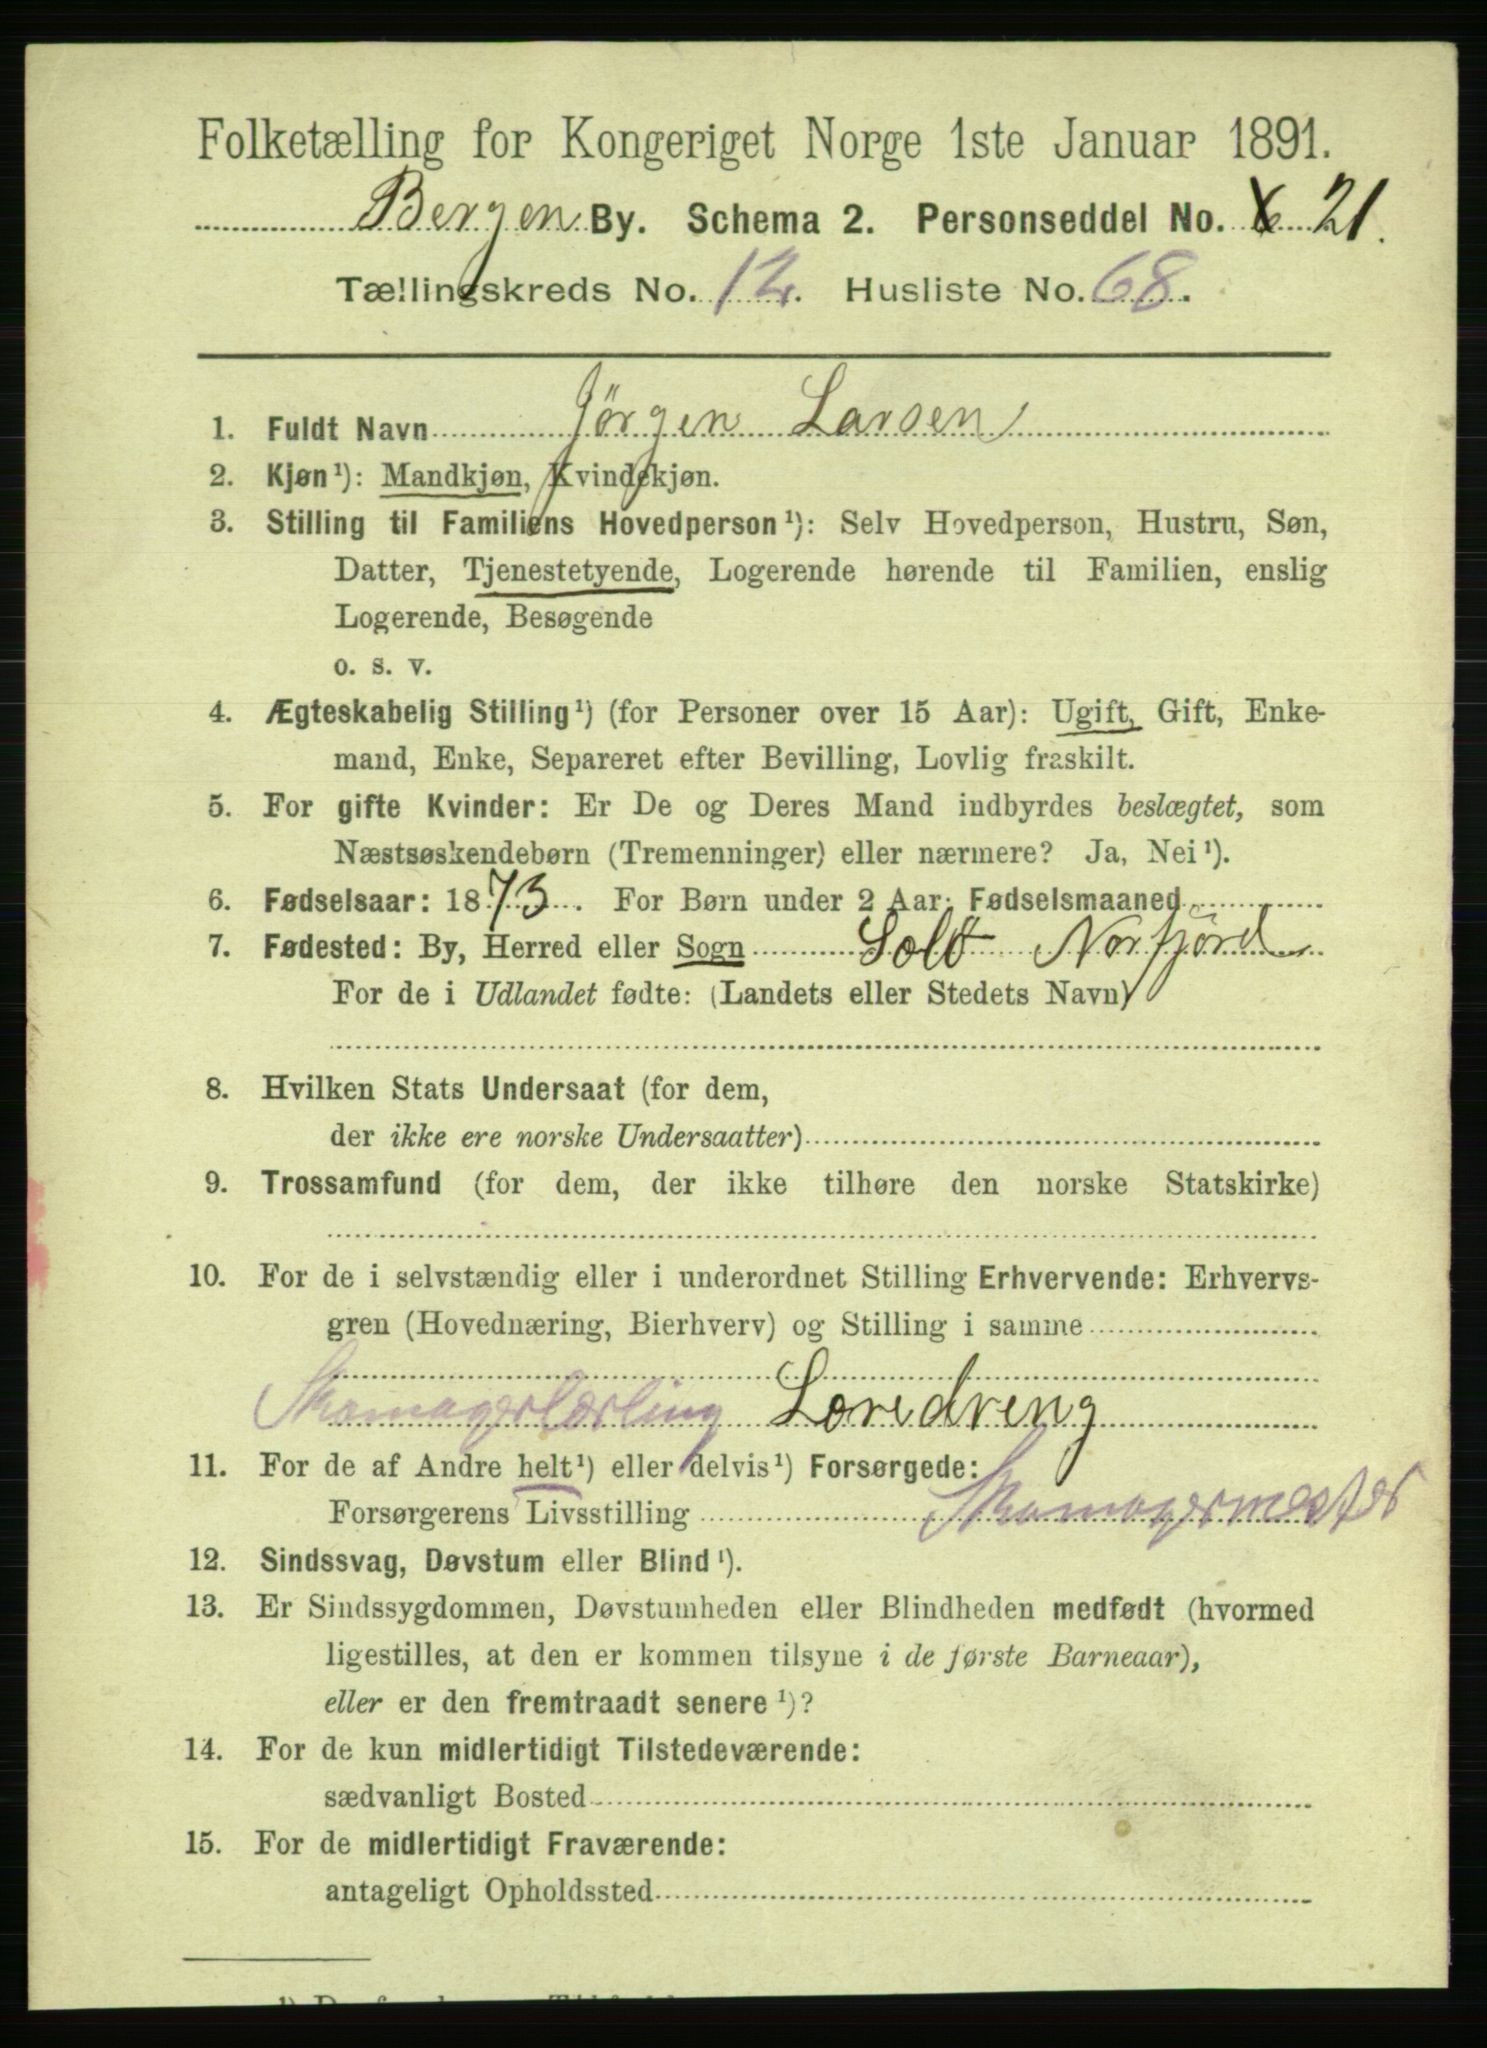 Folketælling for Kongeriget Norge 1ste Januar 1891.
Bergen By. Schema 2. Personseddel No. 21.
Tællingskreds No. 12. Husliste No. 68.
1. Fuldt Navn Jörgen Larsen
2. Kjøn¹): Mandkjøn, Kvindekjøn.
3. Stilling til Familiens Hovedperson¹): Selv Hovedperson, Hustru, Søn,
Datter, Tjenestetyende, Logerende hørende til Familien, enslig
Logerende, Besøgende
o. s. v.
4. Ægteskabelig Stilling¹) (for Personer over 15 Aar): Ugift, Gift, Enke-
mand, Enke, Separeret efter Bevilling, Lovlig fraskilt.
5. For gifte Kvinder: Er De og Deres Mand indbyrdes beslægtet, som
Næstsøskendebørn (Tremenninger) eller nærmere? Ja, Nei¹).
6. Fødselsaar: 1873. For Børn under 2 Aar: Fødselsmaaned
7. Fødested: By, Herred eller Sogn Norfjörd
For de i Udlandet fødte: (Landets eller Stedets Navn)
8. Hvilken Stats Undersaat (for dem,
der ikke ere norske Undersaatter)
9. Trossamfund (for dem, der ikke tilhøre den norske Statskirke)
10. For de i selvstændig eller i underordnet Stilling Erhvervende: Erhvervs-
gren (Hovednæring, Bierhverv) og Stilling i samme
Skomagerlærling Loredreng
11. For de af Andre helt¹) eller delvis¹) Forsørgede:
Forsørgerens Livsstilling Skomagermester
12. Sindssvag, Døvstum eller Blind¹).
13. Er Sindssygdommen, Døvstumheden eller Blindheden medfødt (hvormed
ligestilles, at den er kommen tilsyne i de første Barneaar),
eller er den fremtraadt senere¹)?
14. For de kun midlertidigt Tilstedeværende:
sædvanligt Bosted
15. For de midlertidigt Fraværende:
antageligt Opholdssted